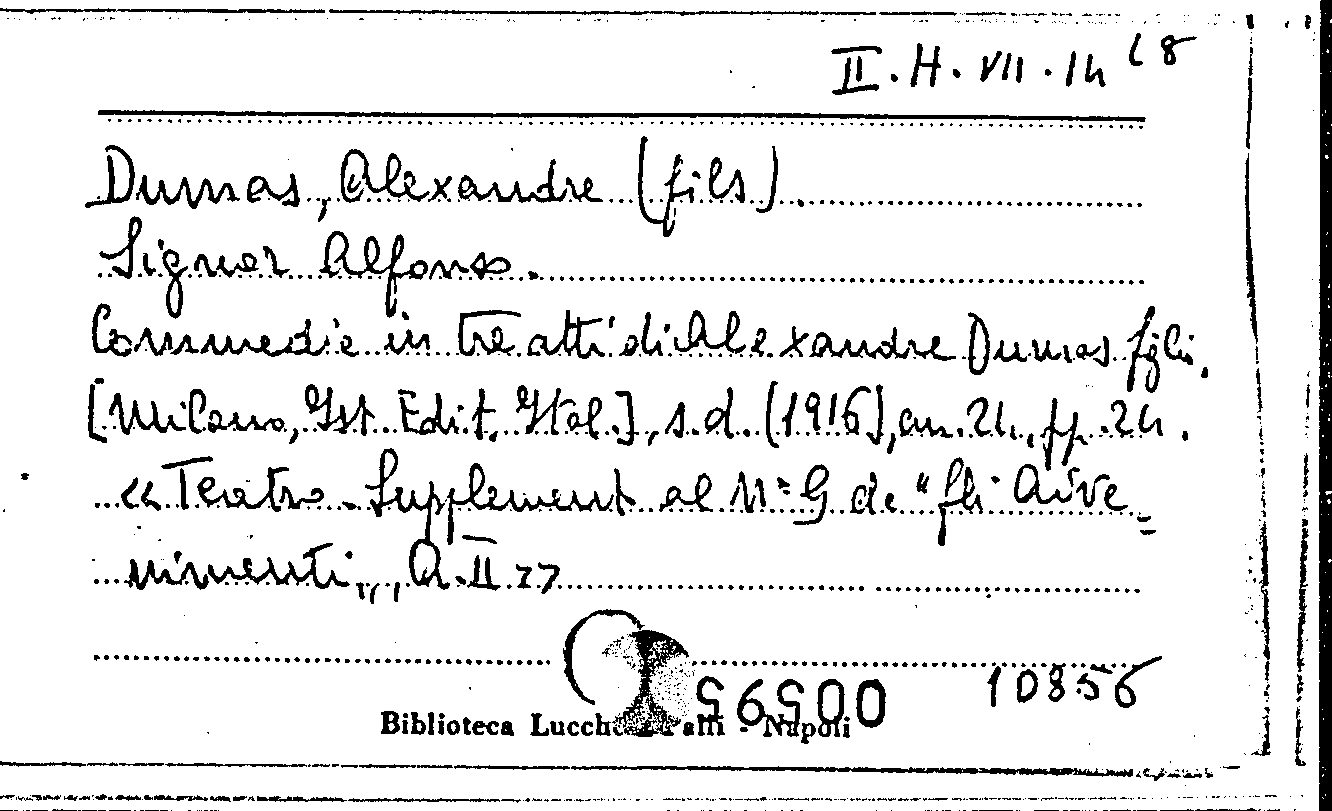 II.H.VII.14 (8
Dumas, Alexandre (fils).
Signor Alfonso.
Commedia in tre atti di Alexandre Dumas figlio.
[Milano, Ist. Edit. Ital.], s.d. (1916), in. 24., pp. 24.
«Teatro - Supplement al N° 9 de "Gli Avve=
nimenti", A. II»
10856
Biblioteca Lucchesi Palli - Napoli